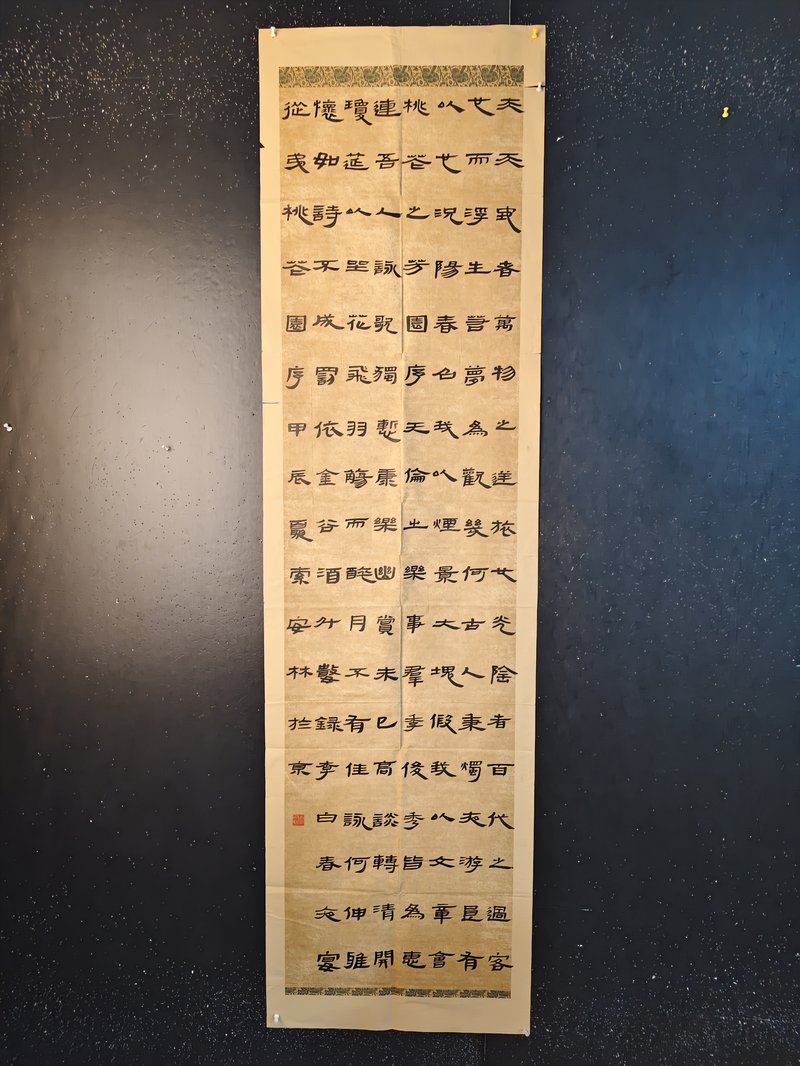 夫天地者萬物之逆旅也光陰者百代之過客
也而浮生若夢為歡幾何古人秉燭夜游良有
以也況陽春召我以煙景大塊假我以文章會
桃花之芳園序天倫之樂事羣季俊秀皆為惠
連吾人詠歌獨慙康樂幽賞未已高談轉清開
瓊筵以坐花飛羽觴而醉月不有佳詠何伸雅
懷如詩不成罰依金谷酒斗數錄李白春夜宴
從弟桃花園序甲辰夏索安林於京